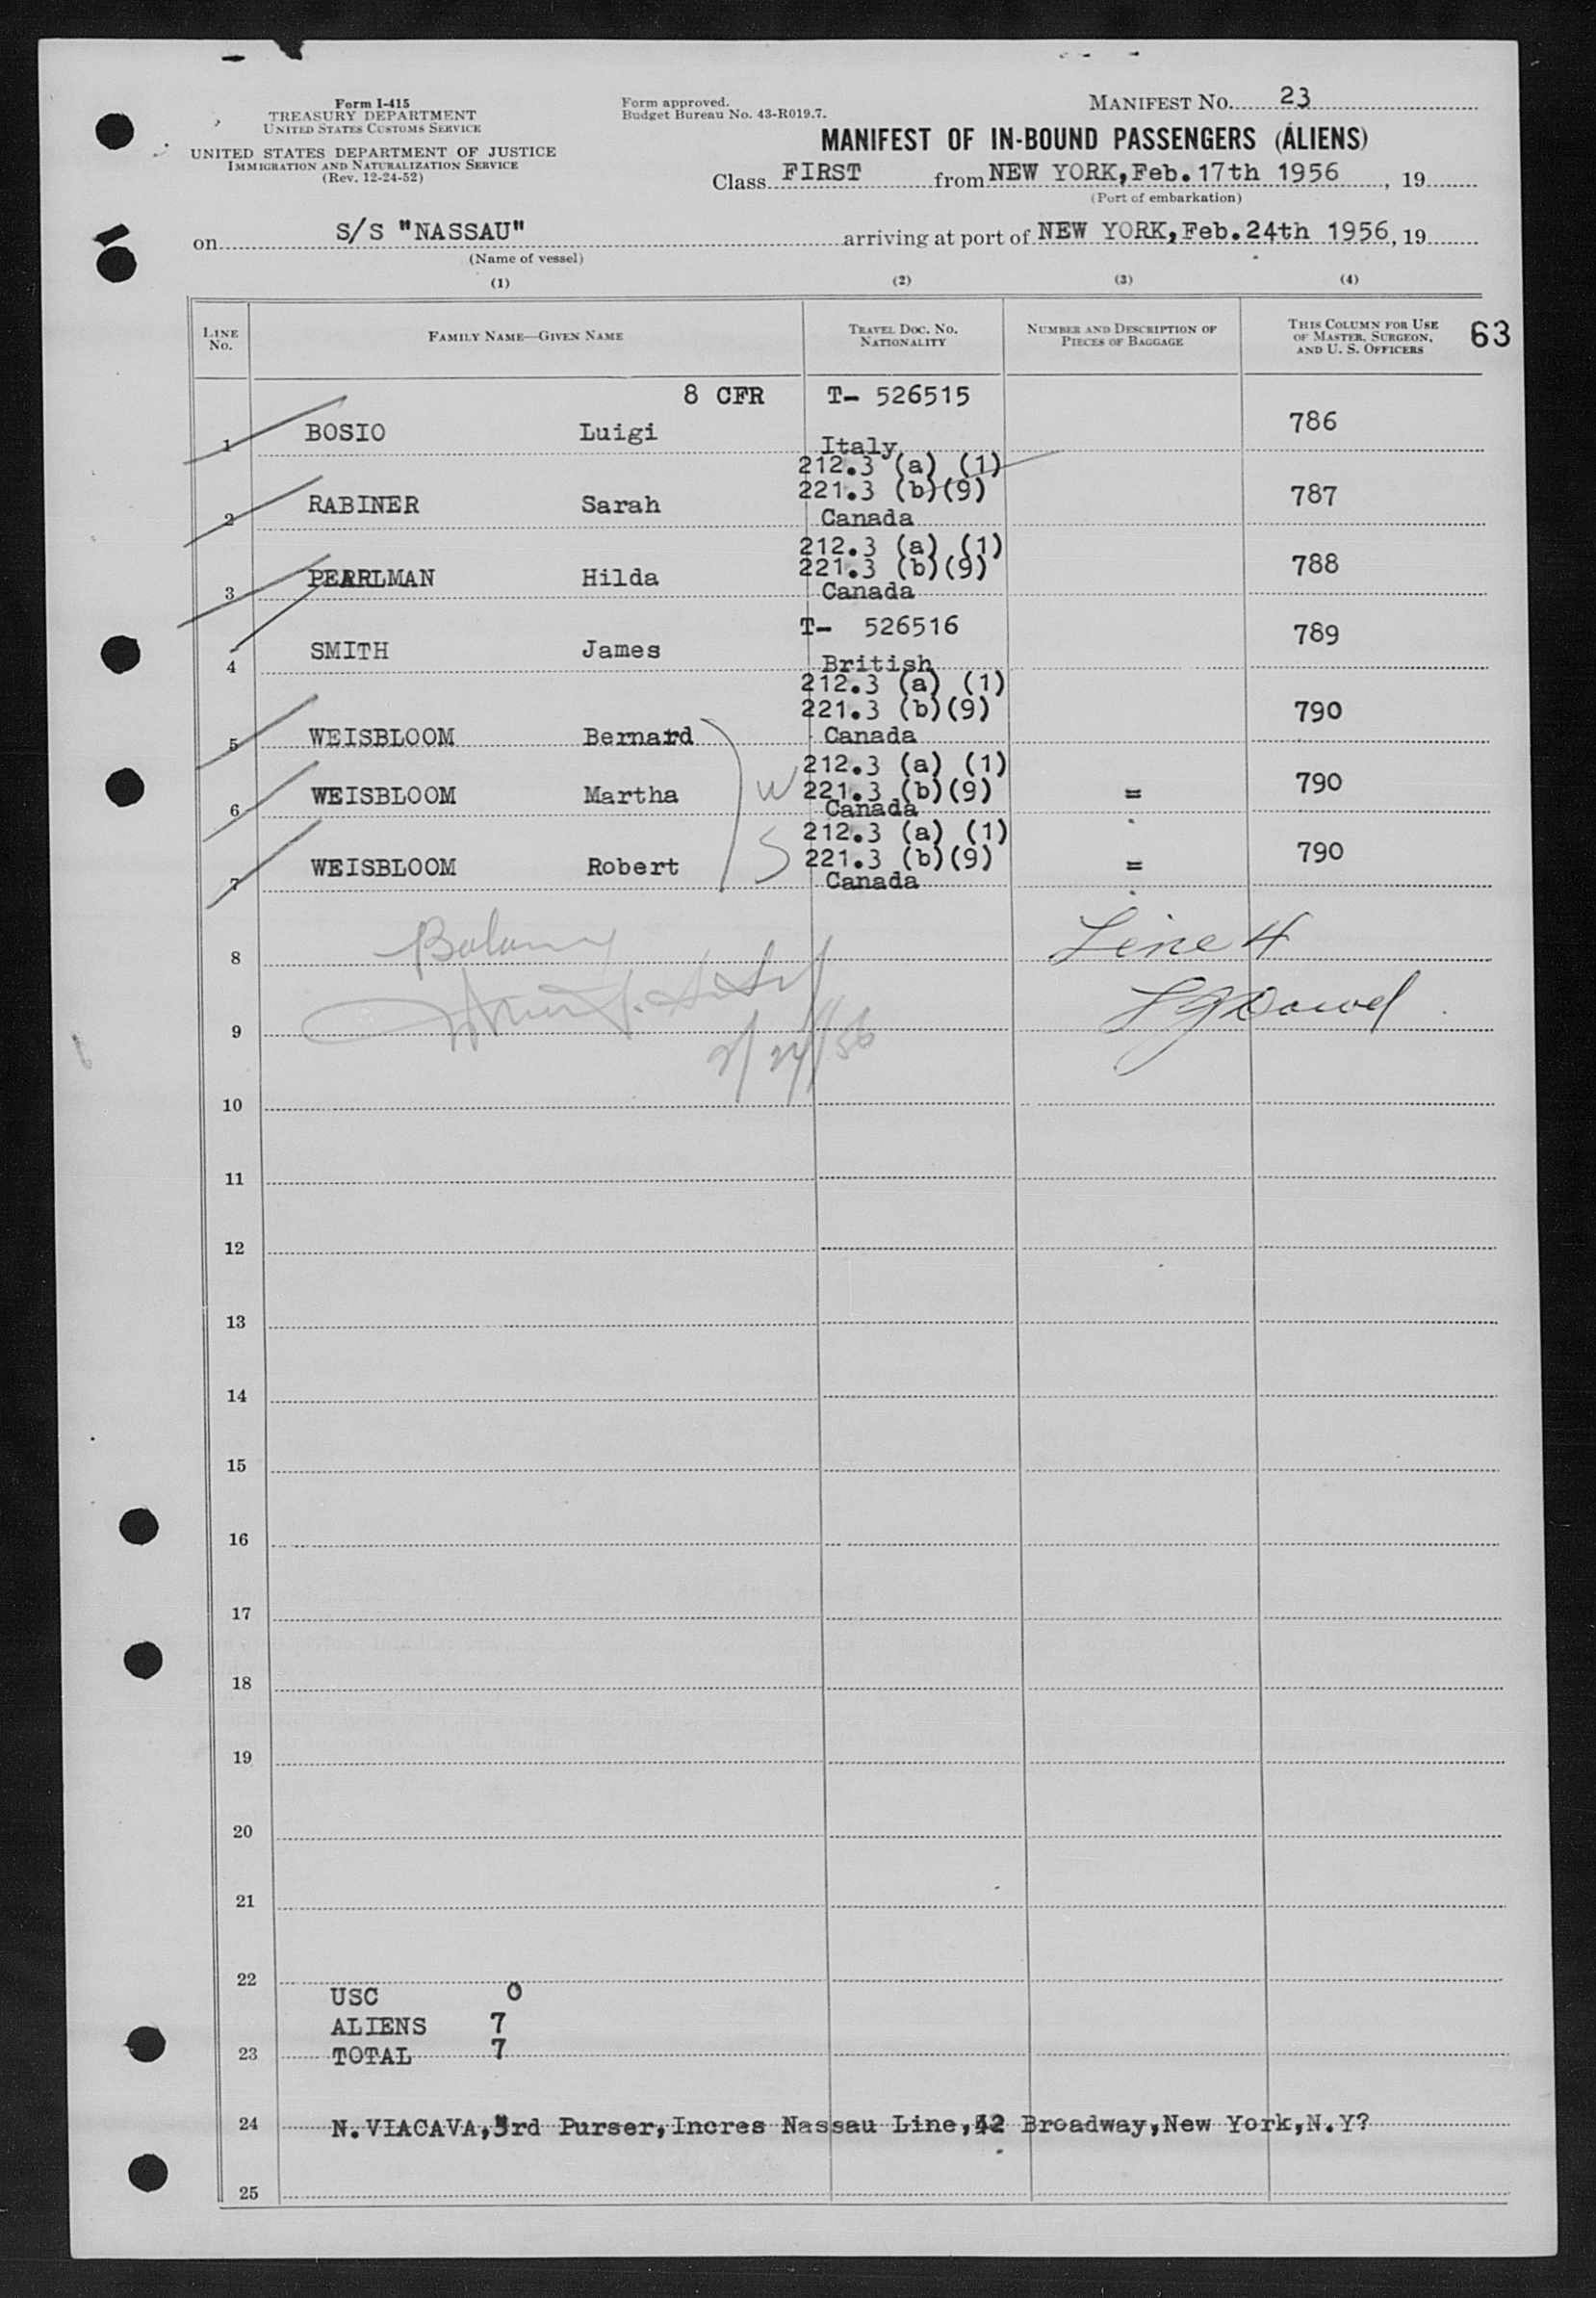 Form I-415
TREASURY DEPARTMENT
UNITED STATES CUSTOMS SERVICE
UNITED STATES DEPARTMENT OF JUSTICE
IMMIGRATION AND NATURALIZATION SERVICE
(Rev. 12-24-52)
Form approved.
Budget Bureau No. 43-R019.7.
MANIFEST NO. 23
MANIFEST OF IN-BOUND PASSENGERS (ALIENS)
Class FIRST from NEW YORK, Feb. 17th 1956, 19
(Port of embarkation)
on S/S "NASSAU" arriving at port of NEW YORK, Feb. 24th 1956, 19
(Name of vessel)
(1) (2) (3) (4)
LINE NO. FAMILY NAME—GIVEN NAME TRAVEL DOC. NO. NATIONALITY NUMBER AND DESCRIPTION OF PIECES OF BAGGAGE THIS COLUMN FOR USE OF MASTER, SURGEON, AND U. S. OFFICERS 63
8 CFR T- 526515
1 BOSIO Luigi Italy 786
212.3 (a) (1)
221.3 (b)(9)
2 RABINER Sarah Canada 787
212.3 (a) (1)
221.3 (b)(9)
3 PEARLMAN Hilda Canada 788
T- 526516
4 SMITH James British 789
212.3 (a) (1)
221.3 (b)(9)
5 WEISBLOOM Bernard Canada 790
212.3 (a) (1)
W 221.3 (b)(9)
6 WEISBLOOM Martha Canada = 790
212.3 (a) (1)
S 221.3 (b)(9)
7 WEISBLOOM Robert Canada = 790
8 Line 4
9
2/24/56
10
11
12
13
14
15
16
17
18
19
20
21
22
USC 0
ALIENS 7
23 TOTAL 7
24 N. VIACAVA, 3rd Purser, Incres Nassau Line, 42 Broadway, New York, N.Y?
25